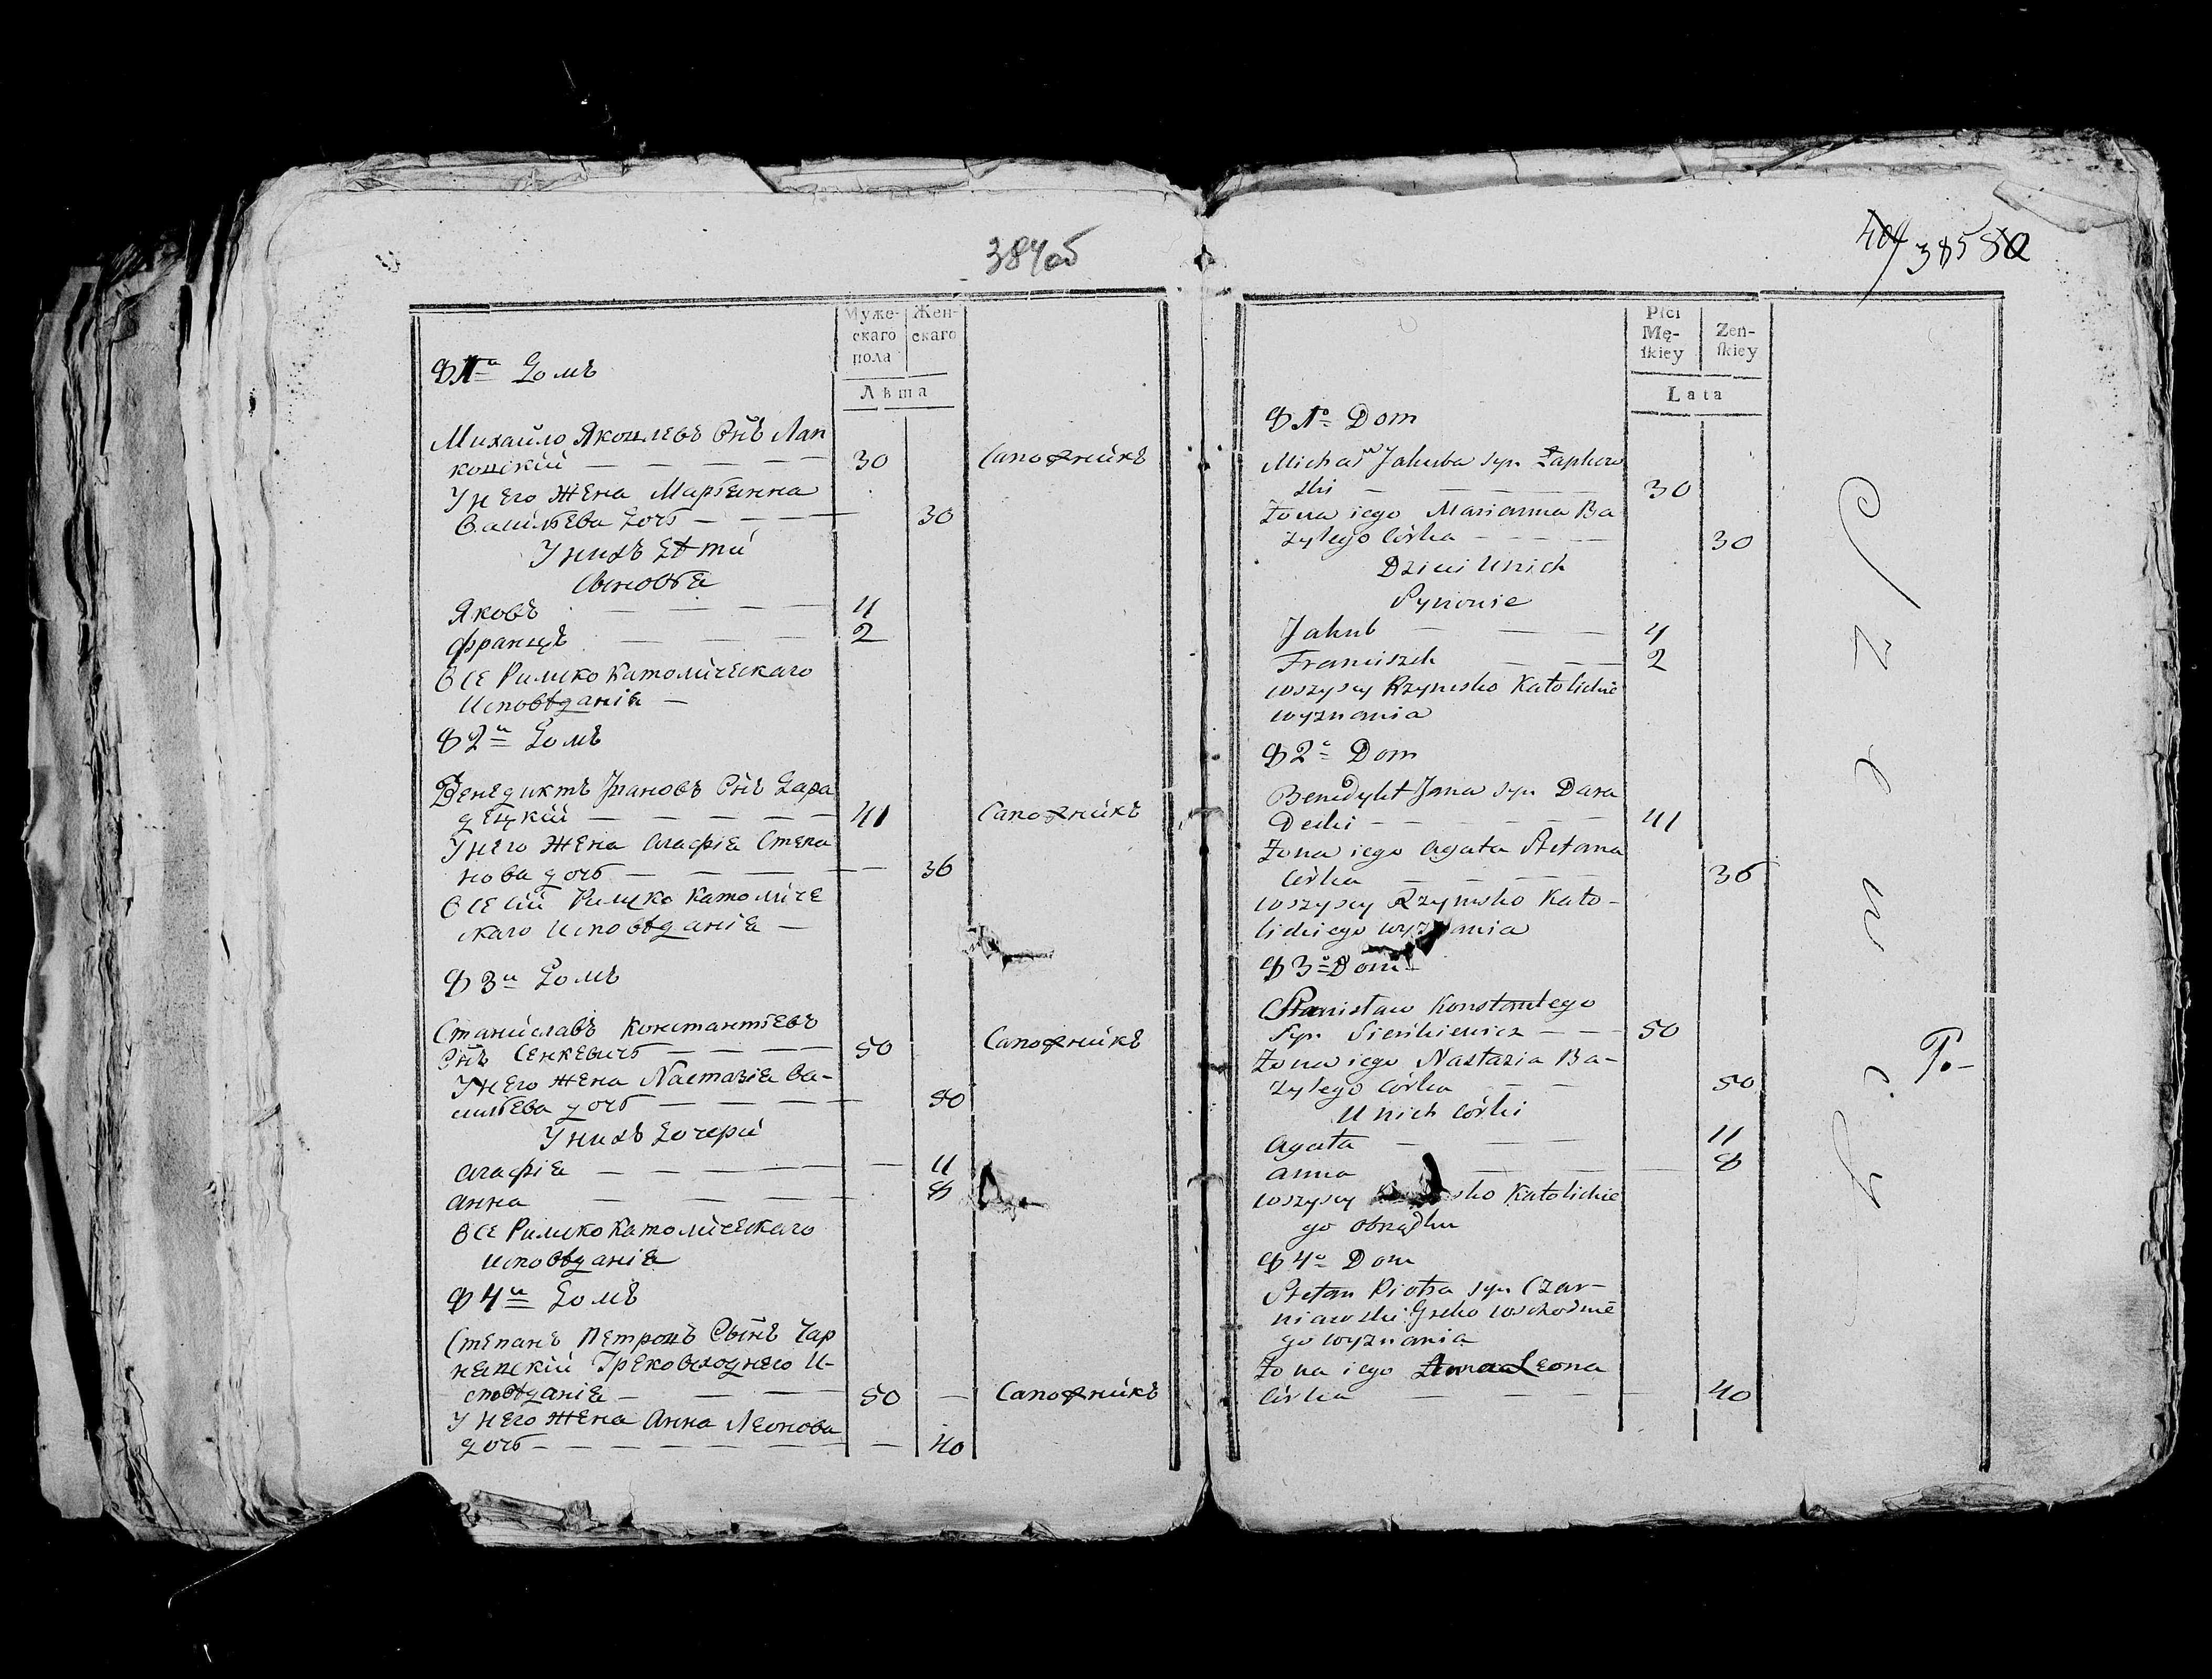 384об
Муже- Жен-
скаго скаго
пола
Лѣта
Ф 1й Домъ
Михайло Яковлевъ Снъ Лап
ковскій — — — — — 30 Сапожникъ
У него жена Маріанна
Васильева дочь — — — — 30
У нихъ дѣти
Сыновья
Яковъ — — — — 4
Францъ — — — 2
Все Римско Католическаго
Исповѣданія —
Ф 2й Домъ
Венедиктъ Ивановъ Снъ Дара
децкій — — — — — 41 Сапожникъ
У него жена Агафія Степа
нова дочь — — — — — 36
Все сіи Римско Католиче
скаго Исповѣданія —
Ф 3й Домъ
Станиславъ Константіевъ
Снъ Сенкевичь — — — — 50 Сапожникъ
У него жена Настазія Ва-
сильева дочь — — — — 50
У нихъ Дочери
Агафія — — — — — 11
Анна — — — — 8
Все Римско Католическаго
Исповѣданія
Ф 4й Домъ
Степанъ Петровъ Сынъ Чар
невскій Грековсходнего И-
сповѣданія — — — — 50 — Сапожникъ
У него жена Анна Леонова
дочь — — — — — — — — 40
404 385 80
Płci
Mę- Zeń-
ſkiey ſkiey
Lata
Ф 1o Dom
Michał Jakuba syn Łapkow
ski — — — — 30
Żona iego Marianna Ba
zylego Córka — — — — 30
Dzieci U nich
Synowie
Jakub — — — 4
Franciszek — — — 2
wszyscy Rzymsko Katolickie
wyznania
Ф 2o Dom
Benedykt Jana syn Dara
Decki — — — — — — 41
Żona iego Agata Stefana
Córka — — — — 36
wszyscy Rzymsko Kato-
lickiego wyznania
Ф 3o Dom
Stanisław Konstantego
Syn Sieńkiewicz — — — 50
Żona iego Nastazia Ba-
zylego Córka — — 50
U nich Córki
Agata — — — 11
Anna — — — 8
wszyscy sko Katolickie
go obrządku
Ф 4o Dom
Stefan Piotra syn Czar-
niawski Greko wschodnie
go wyznania
Żona iego Anna Leona
Córka — — — — — 40